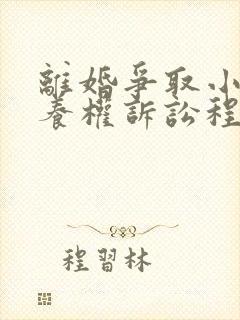 離婚爭取小
養權訴訟程
程習林